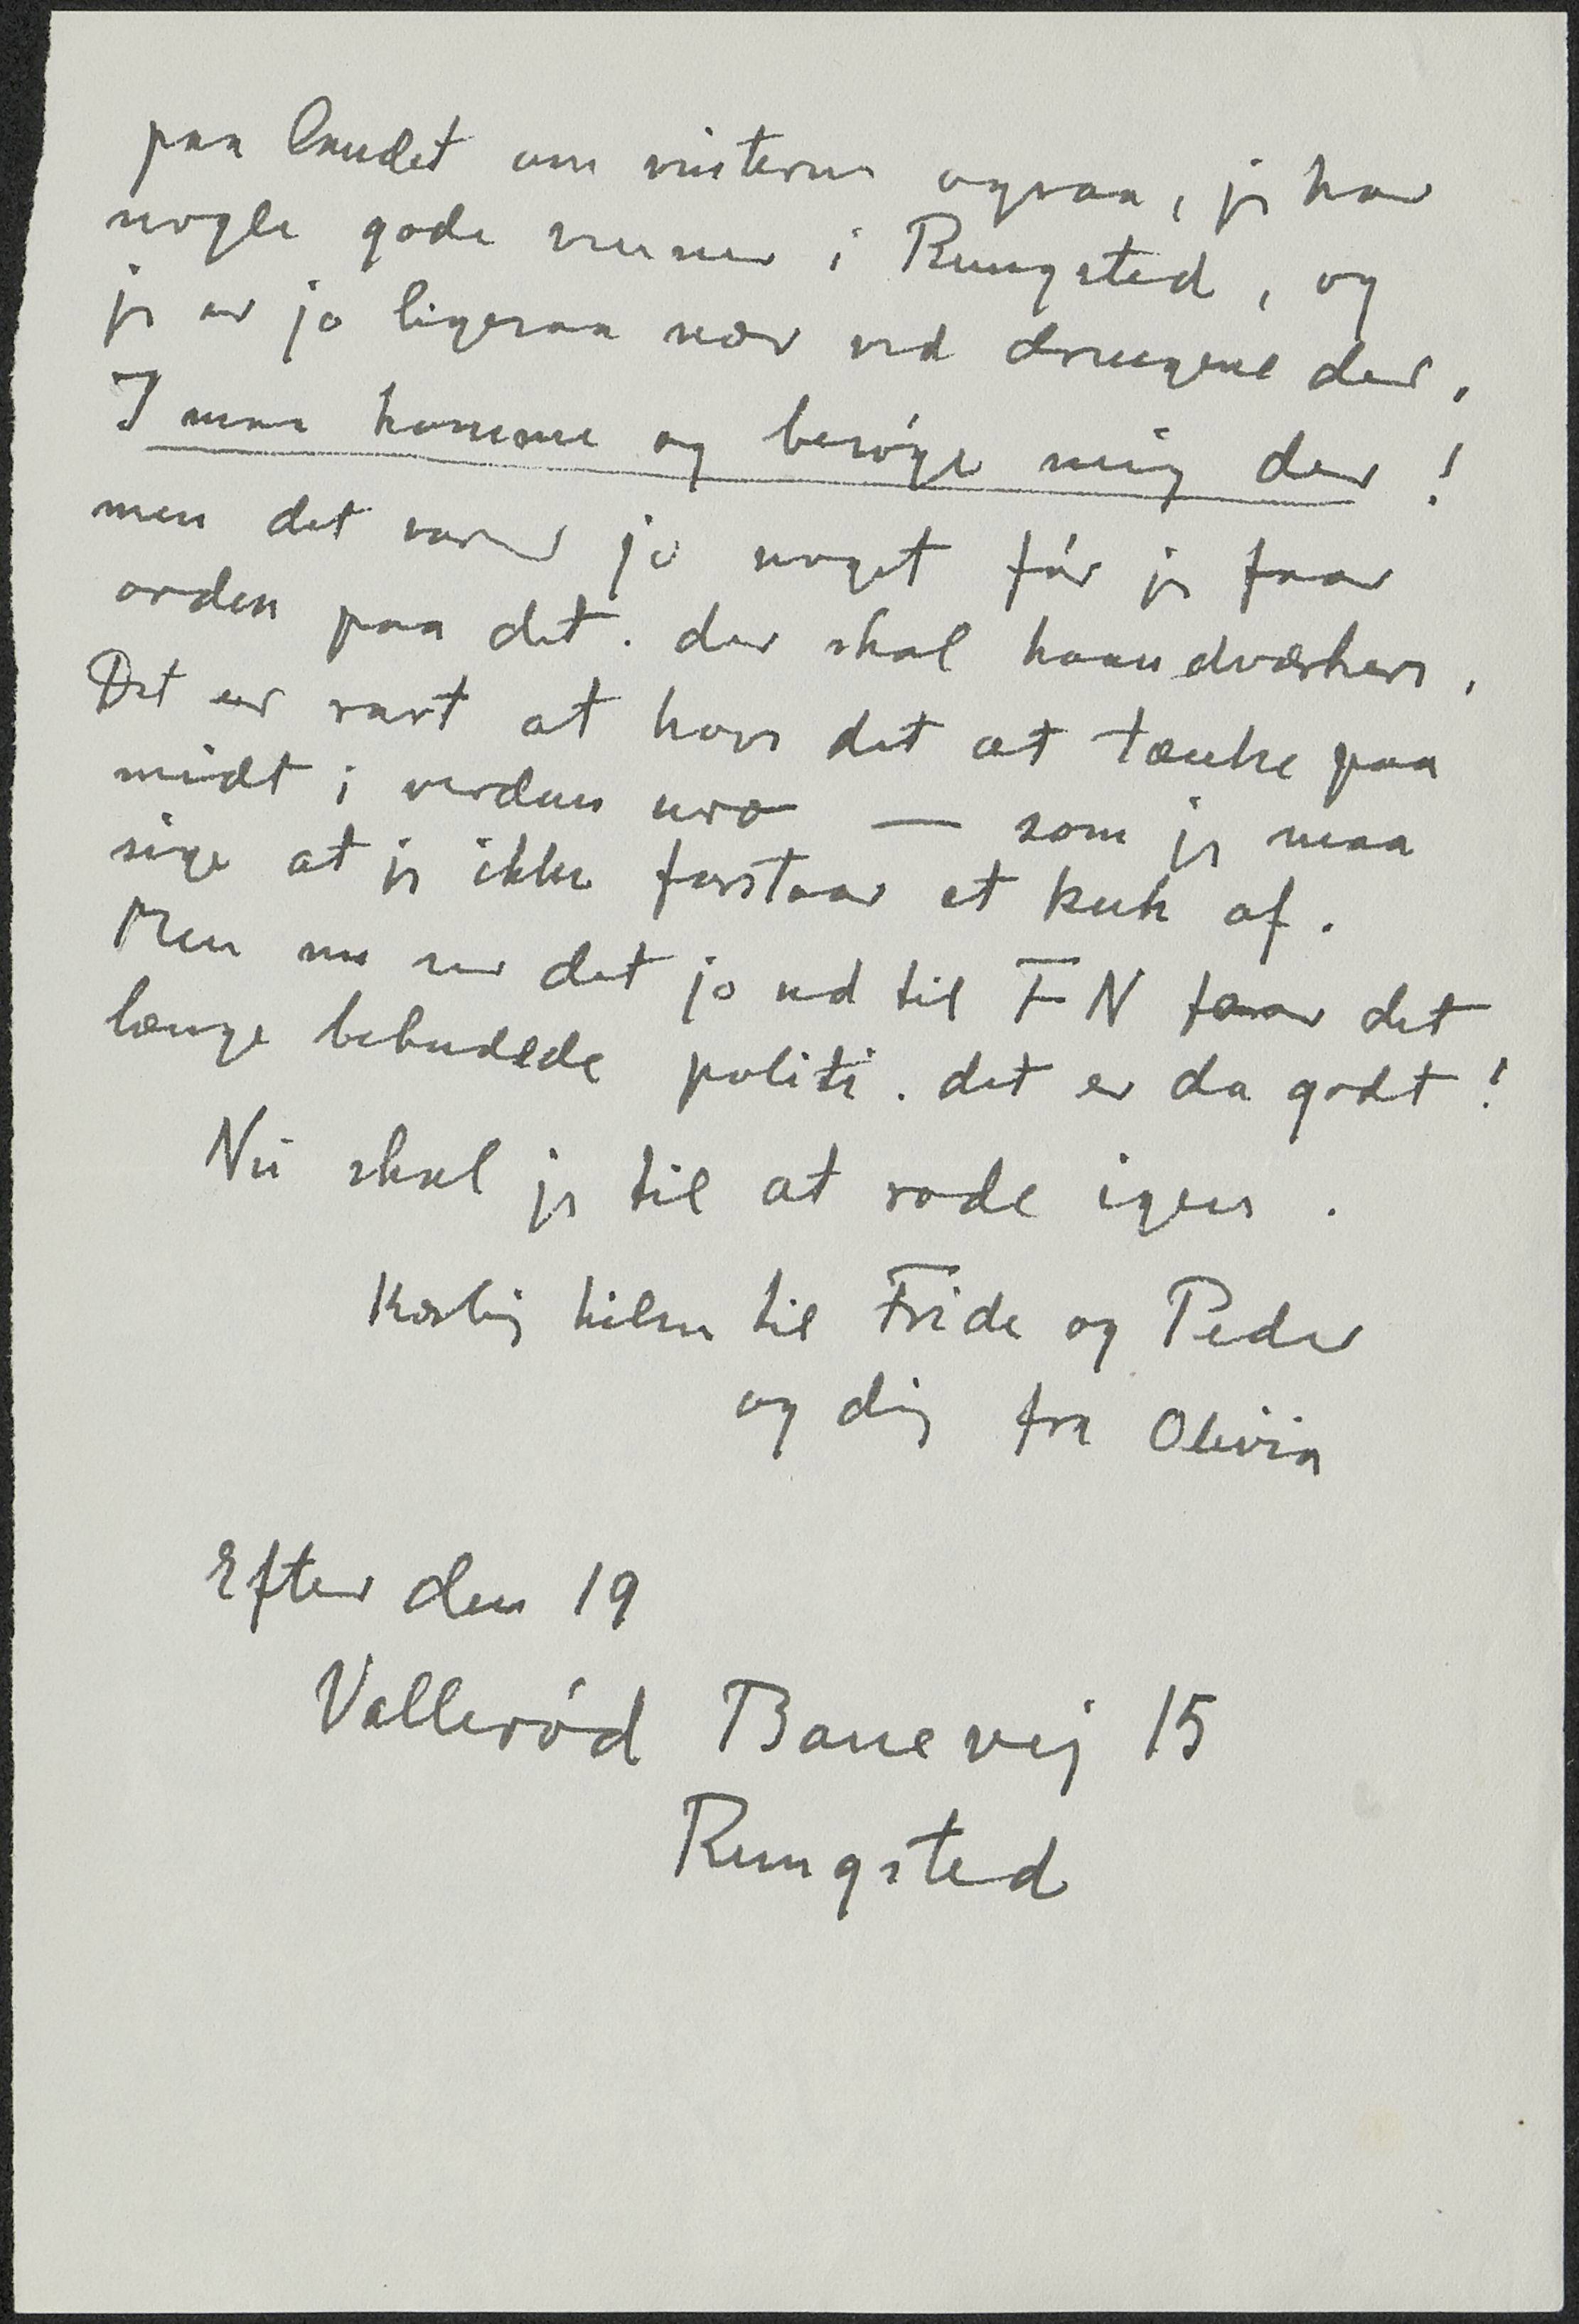 paa landet om vinteren ogsaa, jeg har
nogle gode venner i Rungsted, og
jeg er jo ligesaa nær ved drengene der.
I maa komme og besøge mig der!
men det varer jo noget før jeg faar
orden paa det. der skal haandværkere.
Det er rart at have det at tænke paa
midt i verdens uro — som jeg maa
sige at jeg ikke forstaar et kuk af.
Men nu ser det jo ud til FN faar det
længe bebudede politi. det er da godt!
Nu skal jeg til at rode igen.
Kærlig hilsen til Fride og Peder
og dig fra Olivia
Efter den 19
Vallerød Banevej 15
Rungsted